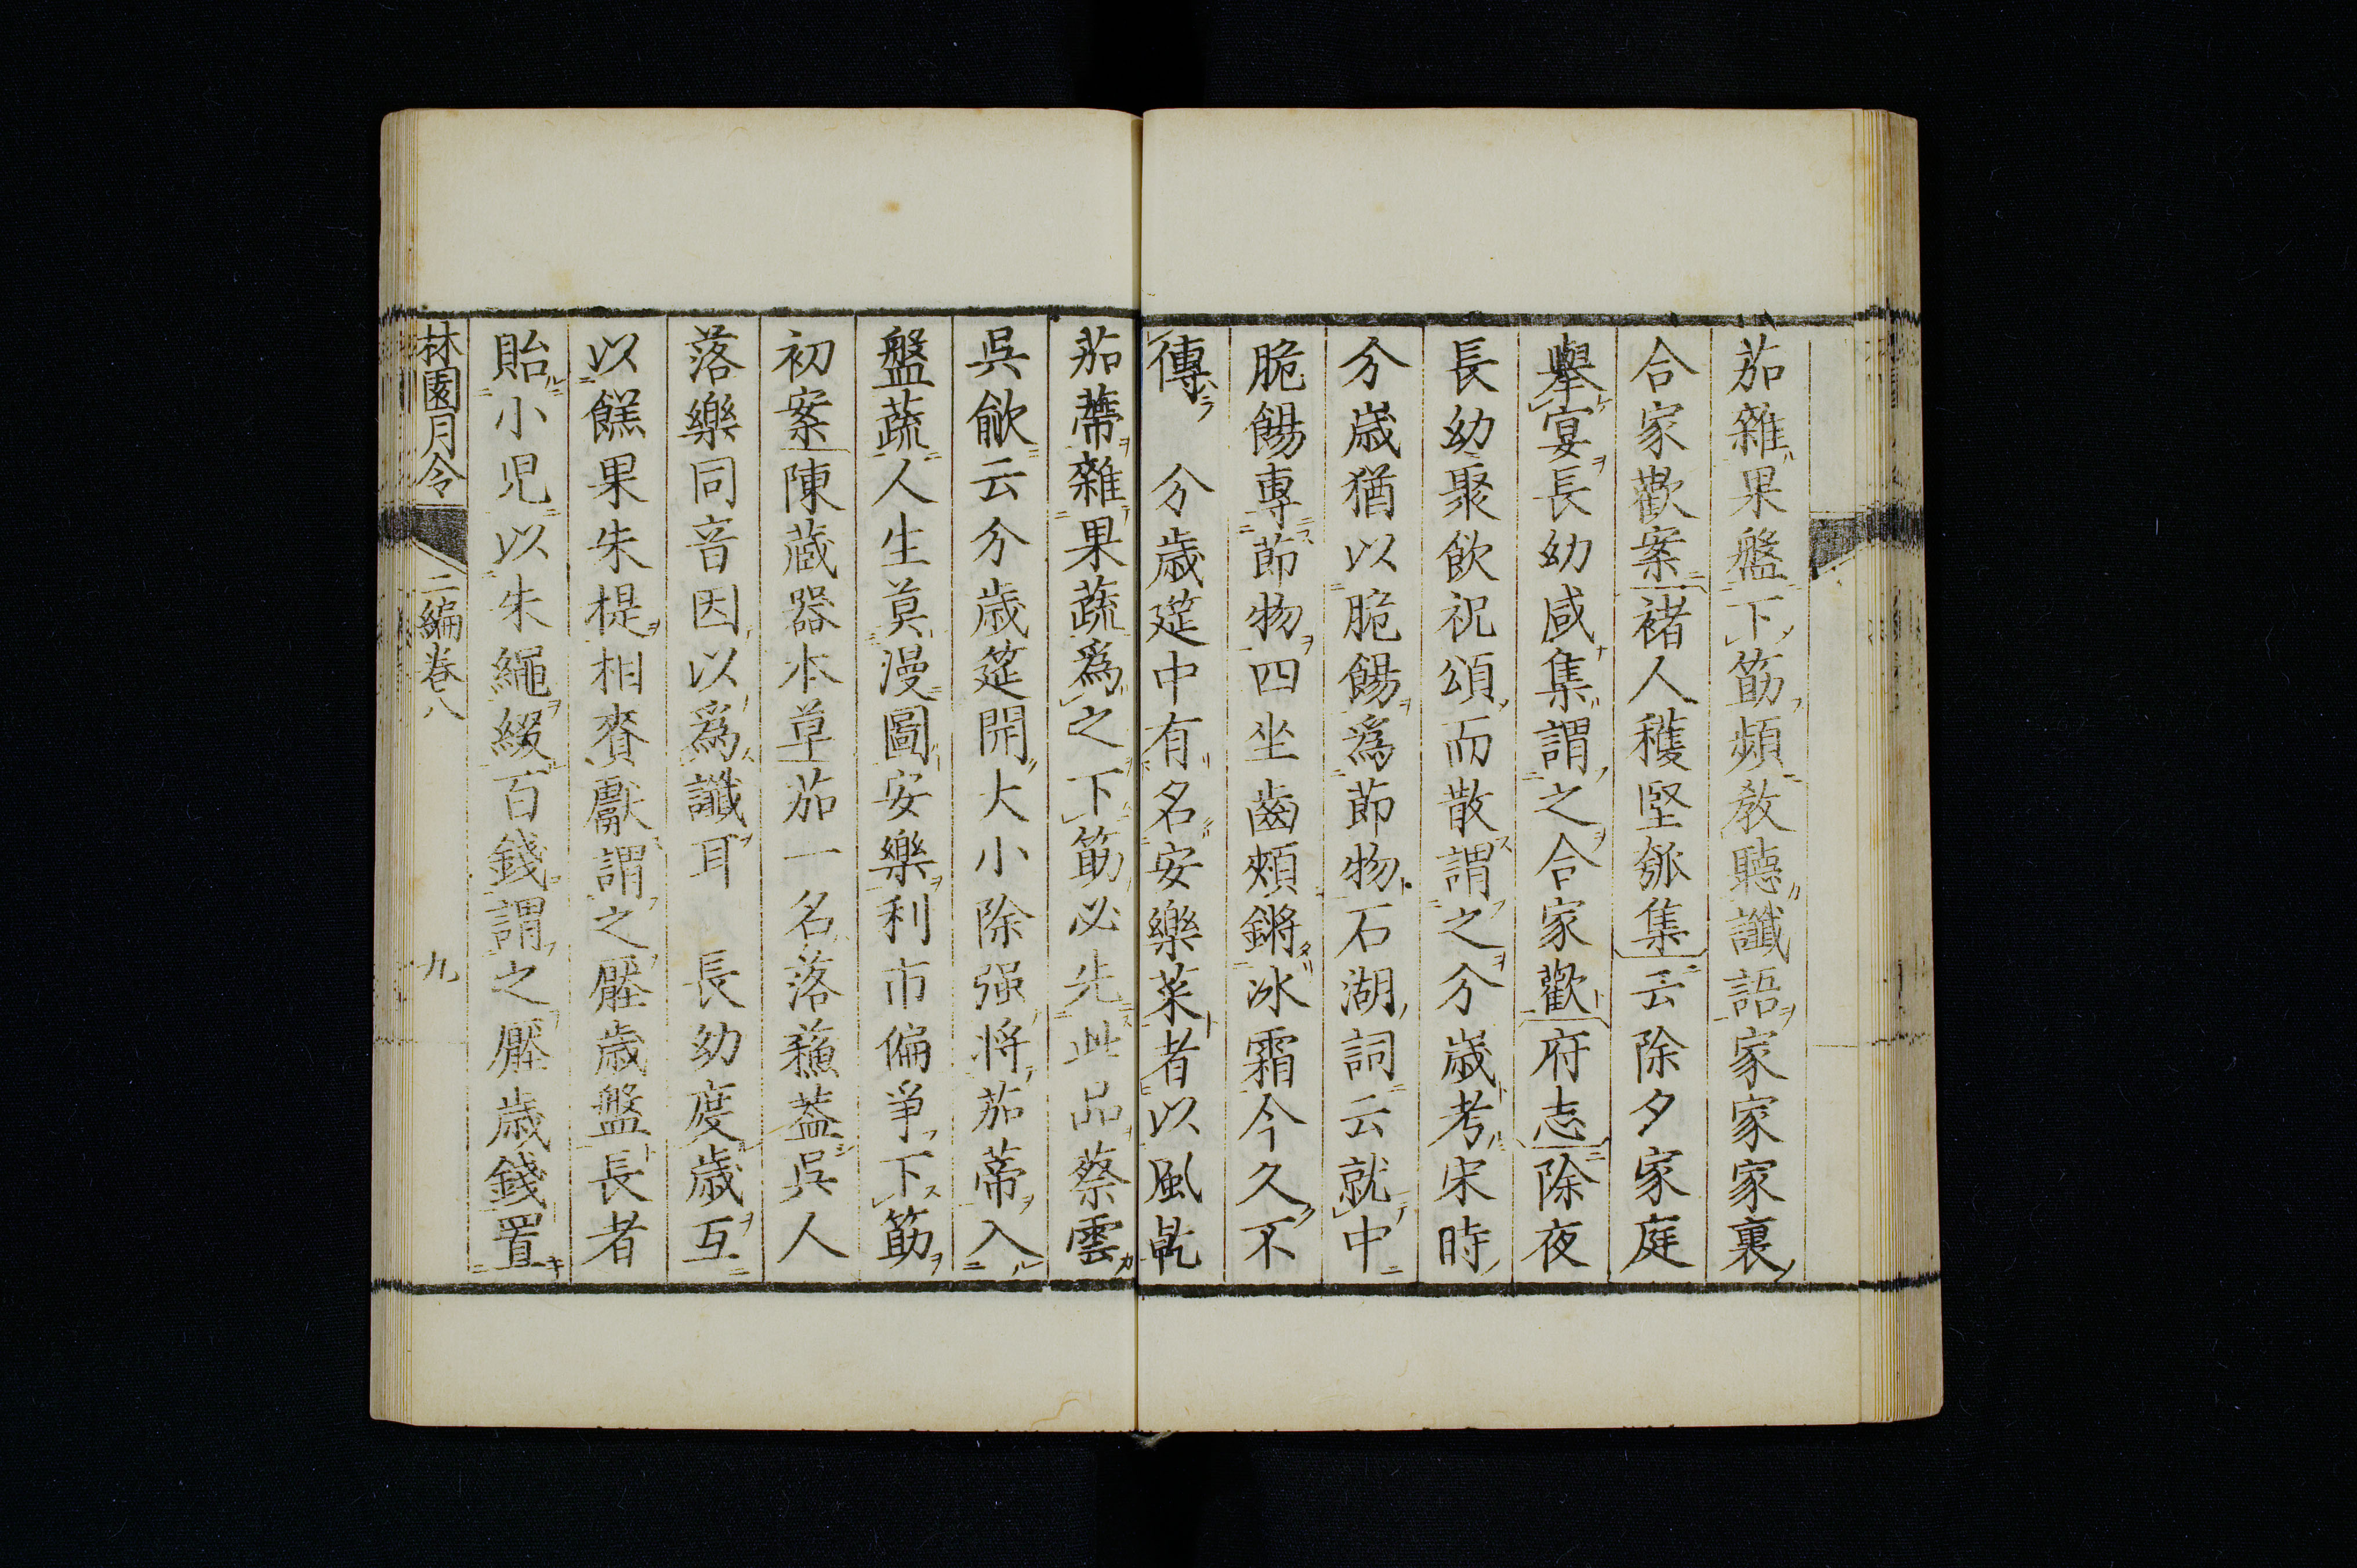 茄雜果盤下筯頻教聽讖語家家家裏
合家歡案褚人穫堅瓠集云除夕家庭
舉宴長幼咸集謂之合家歡府志除夜
長幼聚飲祝頌而散謂之分歳考宋時
分歳猶以脆餳爲節物石湖詞云就中
脆餳專節物四坐齒頰鏘冰霜今久不
傳　分歳筵中有名安樂菜者以風乹
茄蔕雜果蔬爲之下筯必先此品蔡雲
吳歈云分歳筵開大小除强將茄蒂入
盤蔬人生莫漫圖安樂利市偏爭下筯
初案陳藏器本草茄一名落蘓葢吳人
落樂同音因以爲讖耳　長幼度歳互
以餻果朱提相賚獻謂之壓歳盤長者
貽小児以朱繩綴百錢謂之壓歳錢置
林園月令　二編卷八　九